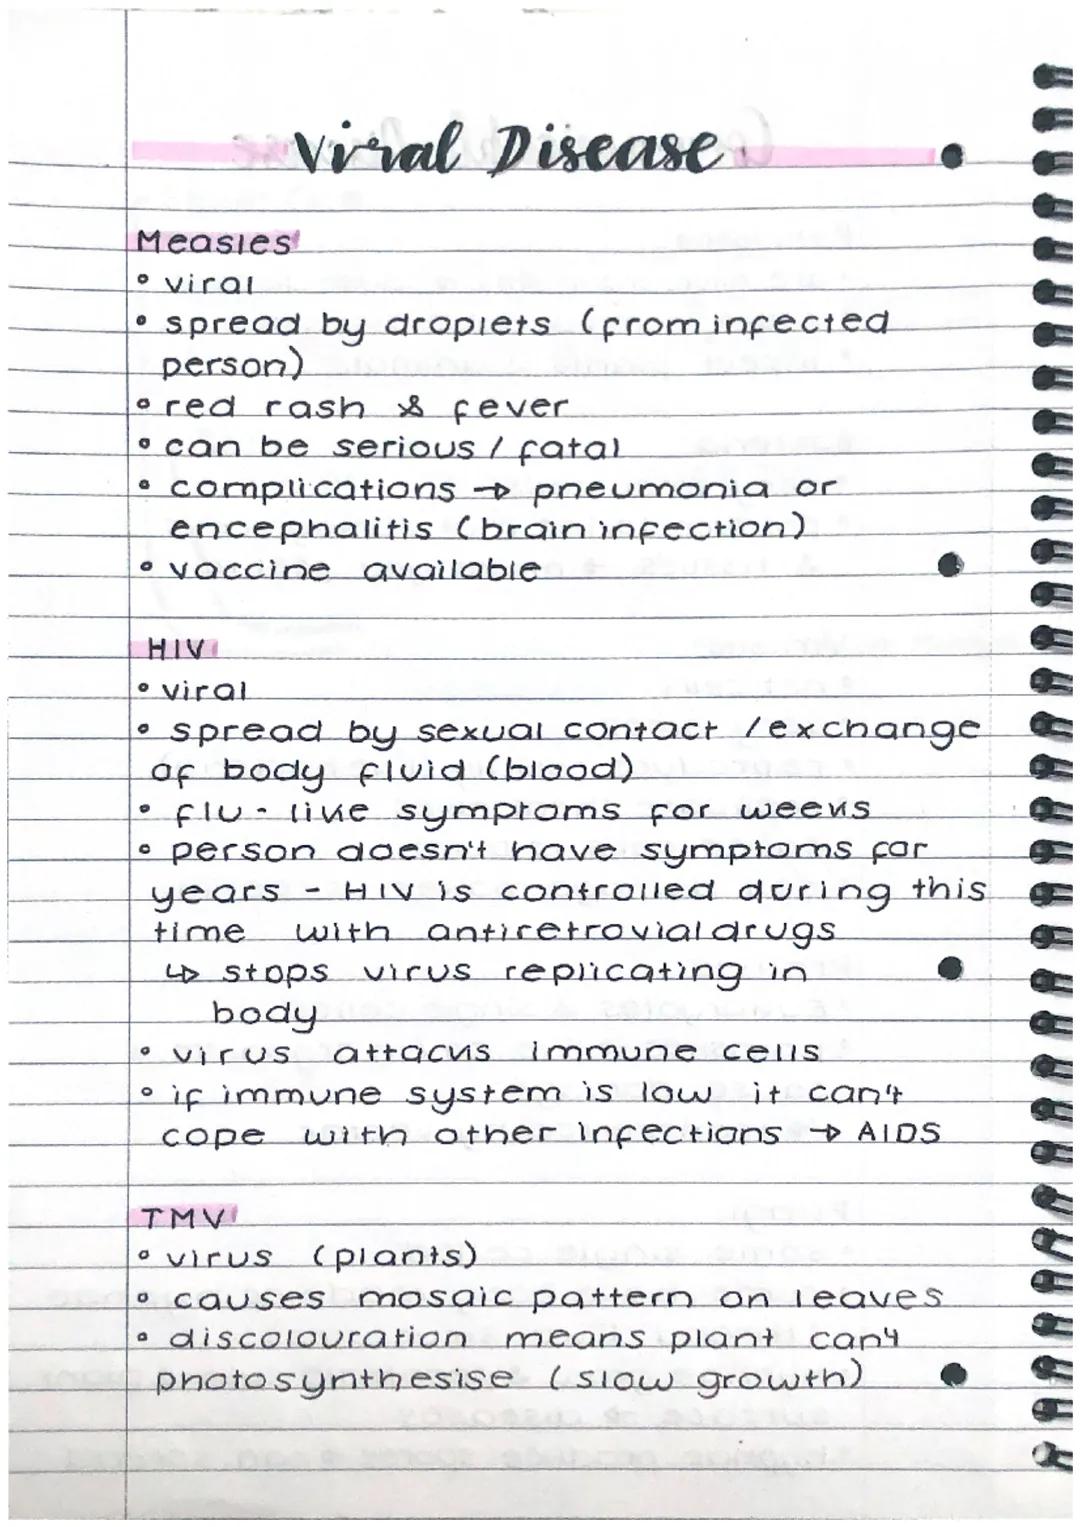 Viral Disease
Measles
• viral
• spread by droplets (from infected
person)
• red rash & fever
• can be serious / fatal
• complications → pneumonia or
encephalitis (brain infection)
• vaccine available
HIV
• viral
• spread by sexual contact / exchange
of body fluid (blood)
• flu - like symptoms for weeks
• person doesn't have symptoms for
years - HIV is controlled during this
time with antiretrovial drugs
↳ stops virus replicating in
body
• virus attacks immune cells
• if immune system is low it can't
cope with other infections → AIDS
TMV
• virus (plants)
• causes mosaic pattern on leaves
• discolouration means plant can't
photosynthesise (slow growth)